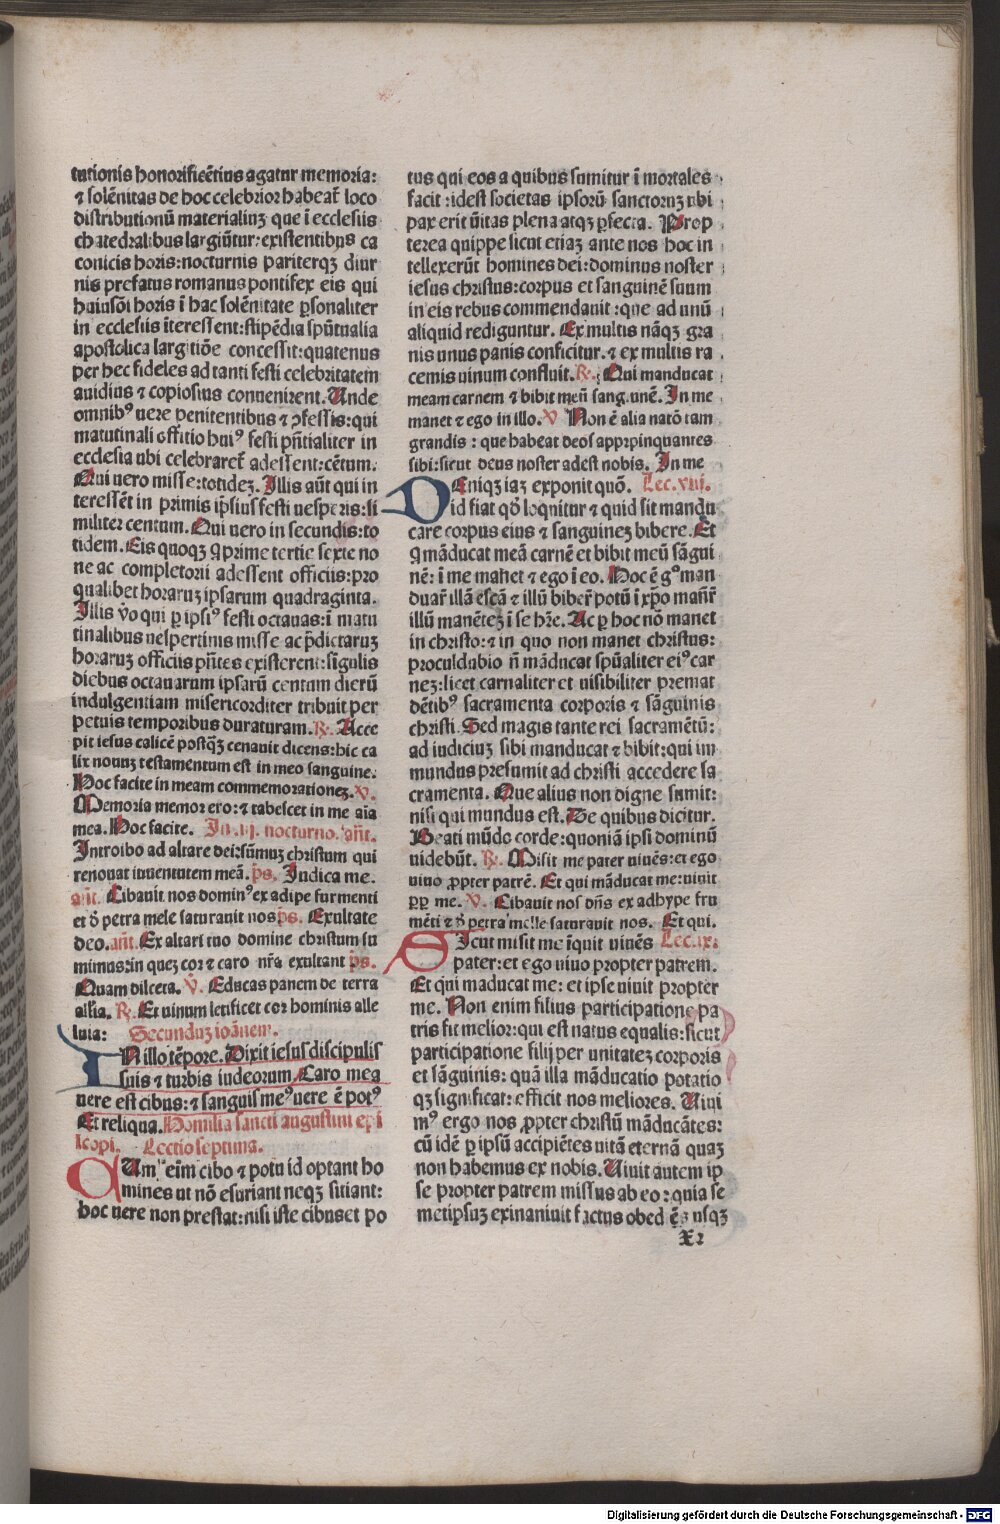 tutionis honorificẽtius agatur memoria:
⁊ solẽnitas de hoc celebrior habeat᷑ loco
distributionũ materialiuꝫ que ĩ ecclesiis
chatedralibus largiũtur: existentibus ca
conicis horis: nocturnis pariterqꝫ diur
nis prefatus romanus pontifex eis qui
huiusõi horis ĩ hac solẽnitate ꝑsonaliter
in ecclesiis ĩteressent: stipẽdia spũtualia
apostolica largitiõe concessit: quatenus
per hec fideles ad tanti festi celebritatem
auidius ⁊ copiosius conuenirent. Unde
omnibꝰ uere penitentibus ⁊ ꝯfessis: qui
matutinali offitio huiꝰ festi pñtialiter in
ecclesia ubi celebraret᷑ adessent: cẽtum.
Qui uero misse: totideꝫ. Illis aũt qui in
teressẽt in primis ipsius festi uesperis: si
militer centum. Qui uero in secundis: to
tidem. Eis quoqꝫ ꝗ prime tertie sexte no
ne ac completorii adessent officiis: pro
qualibet horaruꝫ ipsarum quadraginta.
Illis ṽo qui ꝑ ipsiꝰ festi octauas: ĩ matu
tinalibus uespertinis misse ac p̃dictaruꝫ
horaruꝫ officiis pñtes existerent: sĩgulis
diebus octauarum ipsarũ centum dierũ
indulgentiam misericorditer tribuit per
petuis temporibus duraturam. ℟. Acce
pit iesus calicẽ postq̃ꝫ cenauit dicens: hic ca
lix nouuꝫ testamentum est in meo sanguine.
Hoc facite in meam commemorationeꝫ. V.
Memoria memor ero: ⁊ tabescet in me aĩa
mea. Hoc facite. In .iij. nocturno. añt.
Introibo ad altare dei: sũmuꝫ christum qui
renouat iuuentutem meã. p̃s. Iudica me.
añt. Cibauit nos dominꝰ ex adipe furmenti
et õ petra mele saturauit nos p̃s. Exultate
deo. añt. Ex altari tuo domine christum su
mimus: in queꝫ cor ⁊ caro nr̃a exultant p̃s.
Quam dilecta. V̊. Educas panem de terra
alĩa. ℟. Et uinum letificet cor hominis alle
luia: Secunduꝫ ioãnem.
IN illo tẽpore. Dixit iesus discipulis
suis ⁊ turbis iudeorum Caro mea
uere est cibus: ⁊ sanguis meꝰ uere ẽ potꝰ
Et reliqua. Homilia sancti augustini epi
scopi. Lectio septima.
CUm eĩm cibo ⁊ potu id optant ho
mines ut nõ esuriant neqꝫ sitiant:
hoc uere non prestat: nisi iste cibus et po
tus qui eos a quibus sumitur ĩ mortales
facit: idest societas ipsorũ sanctoruꝫ ubi
pax erit ũitas plena atqꝫ ꝑfecta. Prop
terea quippe sicut etiaꝫ ante nos hoc in
tellexerũt homines dei: dominus noster
iesus christus: corpus et sanguinẽ suum
in eis rebus commendauit: que ad unũ
aliquid rediguntur. Ex multis nãqꝫ gra
nis unus panis conficitur. ⁊ ex multis ra
cemis uinum confluit. ℟. Qui manducat
meam carnem ⁊ bibit meũ sang.unẽ. In me
manet ⁊ ego in illo. V Non ẽ alia natõ tam
grandis: que habeat deos appropinquantes
sibi: sicut deus noster adest nobis. In me
DEniqꝫ iaꝫ exponit quõ. Lec. viij.
id fiat qõ loquitur ⁊ quid sit mandu
care corpus eius ⁊ sanguineꝫ bibere. Et
ꝗ mãducat meã carnẽ et bibit meũ sãgui
nẽ: ĩ me manet ⁊ ego ĩ eo. Hoc ẽ gͦ man
duar᷑ illã escã ⁊ illũ biber᷑ potũ ĩ xp̃o maner᷑
illũ manẽteꝫ ĩ se hr̃e. Ac ꝑ hoc nõ manet
in christo: ⁊ in quo non manet christus:
proculdubio ñ mãducat spũaliter eiꝰ car
neꝫ: licet carnaliter et uisibiliter premat
dẽtibꝰ sacramenta corporis ⁊ sãguinis
christi. Sed magis tante rei sacramẽtũ:
ad iudiciuꝫ sibi manducat ⁊ bibit: qui im
mundus presumit ad christi accedere sa
cramenta. Que alius non digne sumit:
nisi qui mundus est. De quibus dicitur.
Beati mũdo corde: quoniã ipsi dominũ
uidebũt. ℟. Misit me pater uiuẽs: et ego
uiuo ꝓpter patrẽ. Et qui mãducat me: uiuit
ꝓꝑ me. V. Cibauit nos dñs ex adhype fru
mẽti ⁊ õ petra melle saturauit nos. Et qui.
SIcut misit me ĩquit uiuẽs Lec. ix.
pater: et ego uiuo propter patrem.
Et qui maducat me: et ipse uiuit propter
me. Non enim filius participatione pa
tris fit melior: qui est natus equalis: sicut
participatione filij per unitateꝫ corporis
et sãguinis: quã illa mãducatio potatio
qꝫ significat: efficit nos meliores. Uiui
mꝰ ergo nos ꝓpter christũ mãducãtes:
cũ idẽ ꝑ ipsũ accipiẽtes uitã eternã quaꝫ
non habemus ex nobis. Uiuit autem ip
se propter patrem missus ab eo: quia se
metipsuꝫ exinaniuit factus obediẽs usqꝫ
x2
Digitalisierung gefördert durch die Deutsche Forschungsgemeinschaft - DFG